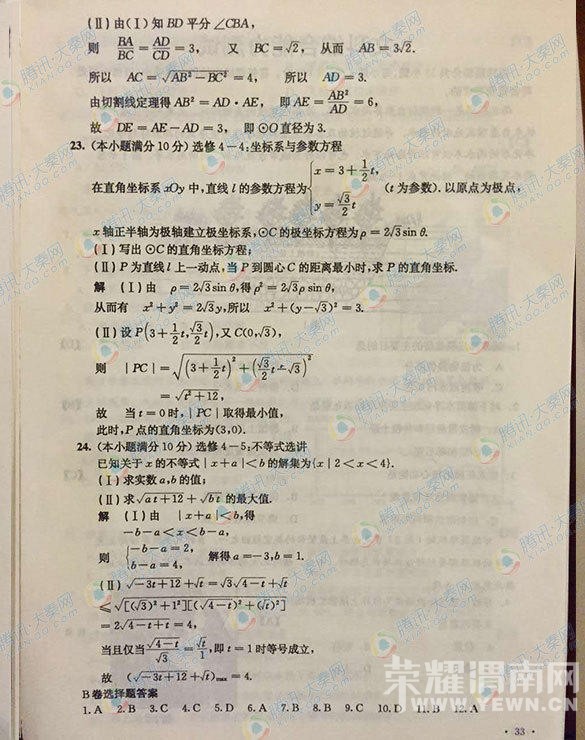 (Ⅱ)由(Ⅰ)知 BD 平分∠CBA,
则 BA/BC = AD/CD = 3, 又 BC=√2, 从而 AB=3√2.
所以 AC=√(AB²-BC²)=4, 所以 AD=3.
由切割线定理得 AB²=AD·AE, 即 AE=AB²/AD=6,
故 DE=AE-AD=3, 即⊙O直径为3.
23.(本小题满分10分)选修4-4:坐标系与参数方程
在直角坐标系 xOy 中,直线 l 的参数方程为{x=3+1/2 t, y=√3/2 t (t 为参数).以原点为极点,
x 轴正半轴为极轴建立极坐标系,⊙C的极坐标方程为ρ=2√3sin θ.
(Ⅰ)写出⊙C的直角坐标方程;
(Ⅱ)P 为直线 l 上一动点,当 P 到圆心 C 的距离最小时,求 P 的直角坐标.
解 (Ⅰ)由 ρ=2√3sin θ,得 ρ²=2√3ρsin θ,
从而有 x²+y²=2√3y,所以 x²+(y-√3)²=3.
(Ⅱ)设 P(3+1/2 t, √3/2 t),又 C(0,√3),
则 |PC|=√((3+1/2 t)²+(√3/2 t-√3)²)
=√(t²+12),
故 当 t=0 时,|PC|取得最小值,
此时,P点的直角坐标为(3,0).
24.(本小题满分10分)选修4-5:不等式选讲
已知关于 x 的不等式|x+a|<b 的解集为{x|2<x<4}.
(Ⅰ)求实数 a,b 的值;
(Ⅱ)求√(at+12)+√(bt) 的最大值.
解 (Ⅰ)由 |x+a|<b,得
-b-a<x<b-a,
则 {-b-a=2, b-a=4, 解得 a=-3,b=1.
(Ⅱ)√(-3t+12)+√t=√3√(4-t)+√t
≤√([(√3)²+1²][(√(4-t))²+(√t)²])
=2√(4-t+t)=4,
当且仅当 √(4-t)/√3=√t/1,即 t=1 时等号成立,
故 (√(-3t+12)+√t)max=4.
B卷选择题答案
1.A 2.B 3.C 4.C 5.D 6.A 7.B 8.B 9.C 10.D 11.B 12.A
· 33 ·
荣耀渭南网
WWW.YEWN.CN
腾讯·大秦网
XIAN.QQ.COM